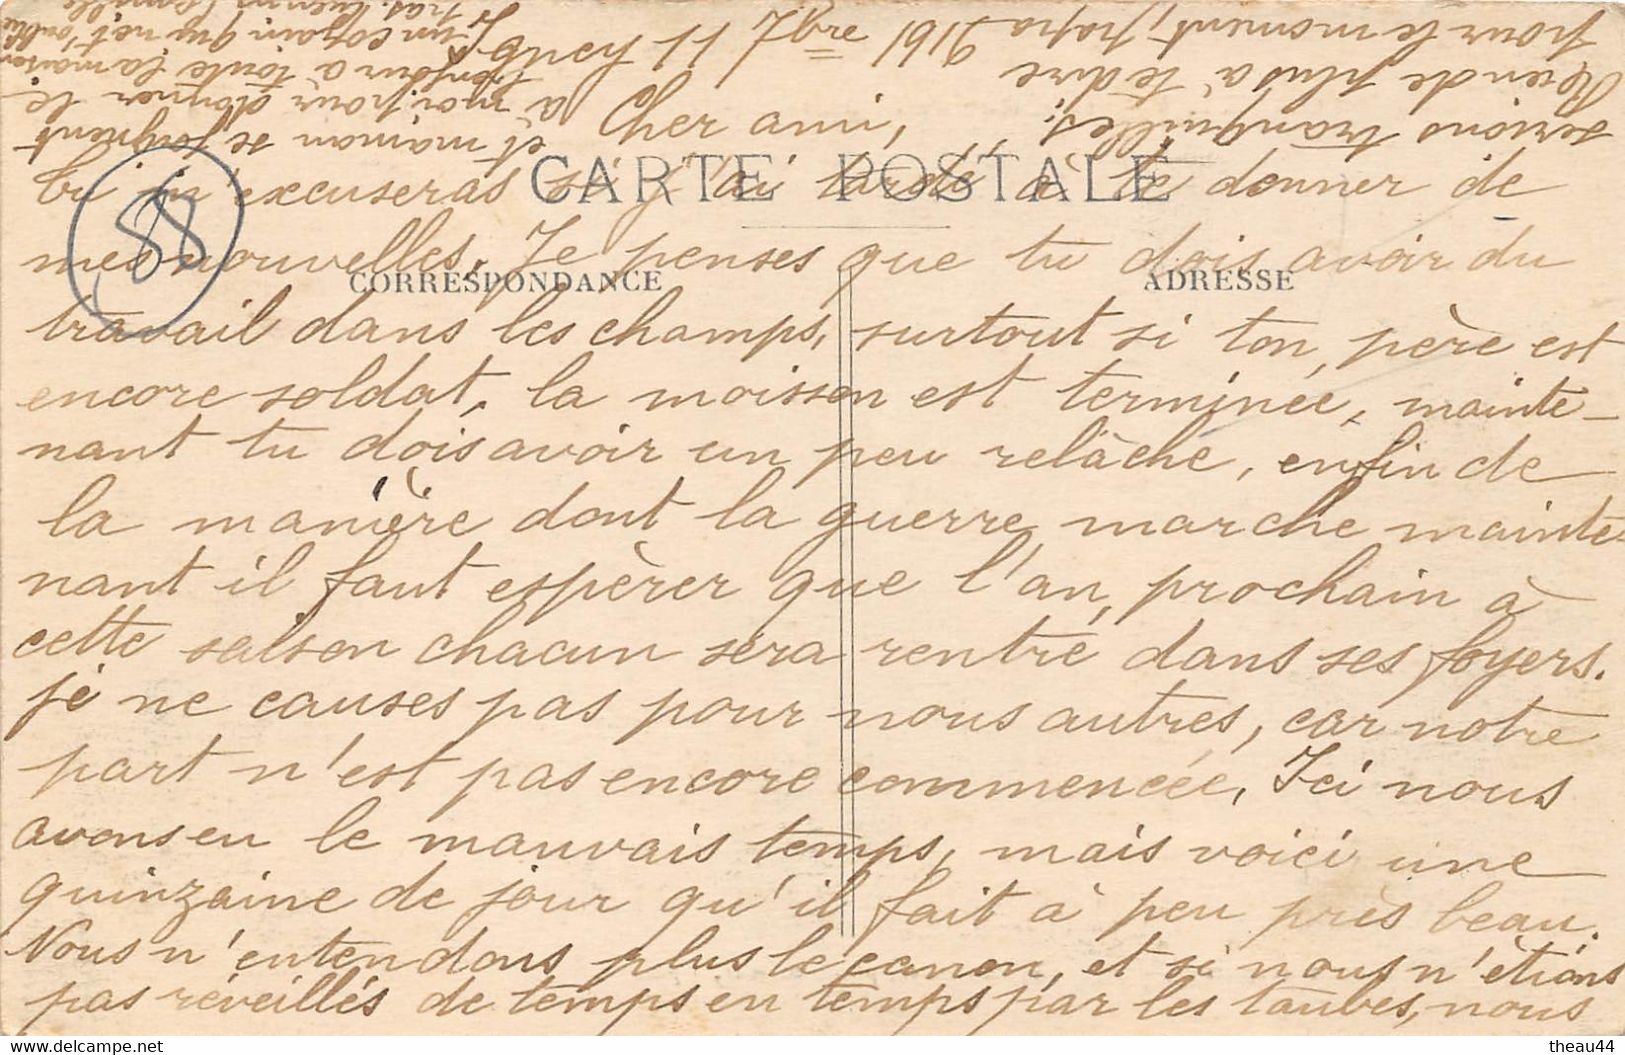 11 7bre 1916
Cher ami,
CARTE POSTALE
Tu m'excuseras si j'ai tardé, à te donner de
mes nouvelles. Je penses que tu dois avoir du
CORRESPONDANCE
ADRESSE
travail dans les champs, surtout si ton père est
encore soldat, la moisson est terminée, mainte-
nant tu dois avoir un peu relâche, enfin de
la manière dont la guerre marche mainte-
nant il faut espèrer que l'an prochain à
cette saison chacun sera rentré dans ses foyers.
je ne causes pas pour nous autres, car notre
part n'est pas encore commencée, Ici nous
avons eu le mauvais temps, mais voici une
quinzaine de jour qu'il fait à peu près beau.
Nous n'entendons plus le canon, et si nous n'ètions
pas réveillés de temps en temps par les taubes, nous
serions tranquilles.
Rien de plus à te dire
pour le moment, papa
et maman se joignent
à moi pour donner le
bonjour à toute la maison
un copain qui ne t'oublie
88
theau44